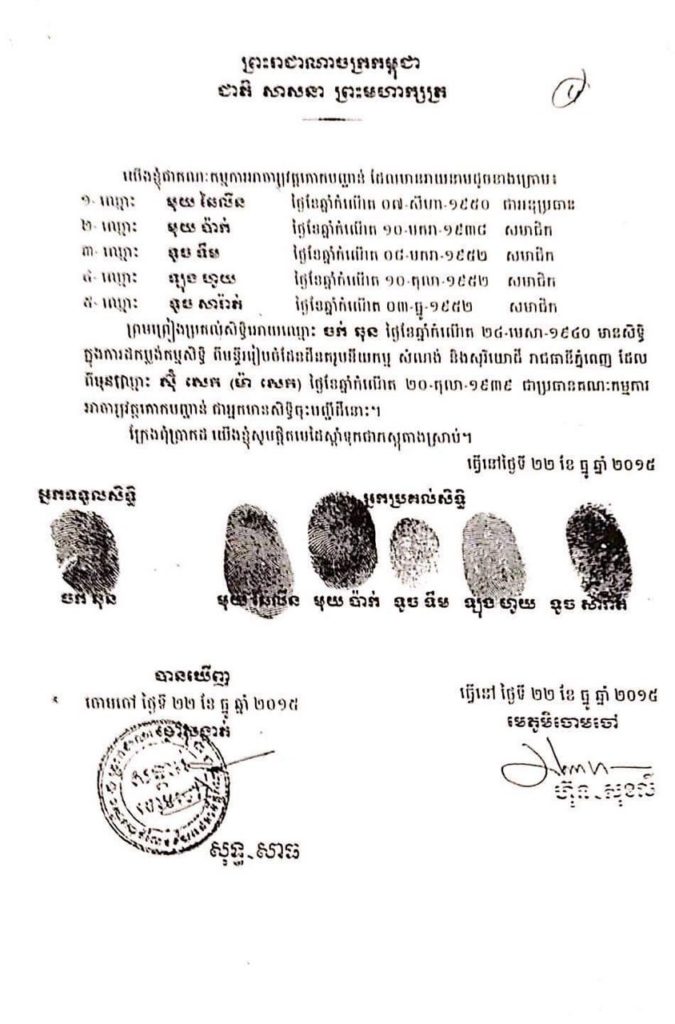 ព្រះរាជាណាចក្រកម្ពុជា
ជាតិ សាសនា ព្រះមហាក្សត្រ
យើងខ្ញុំជាគណៈកម្មការអាចារ្យវត្តគោកបញ្ជាន់ ដែលមានរាយនាមដូចខាងក្រោម៖
១- ឈ្មោះ មុយ ឆៃលីន ថ្ងៃខែឆ្នាំកំណើត ០៧-សីហា-១៩៥០ ជាអនុប្រធាន
២- ឈ្មោះ មុយ ប៉ាក់ ថ្ងៃខែឆ្នាំកំណើត ១០-មករា-១៩៣៨ សមាជិក
៣- ឈ្មោះ ទូច ទឹម ថ្ងៃខែឆ្នាំកំណើត ០៨-មករា-១៩៥២ សមាជិក
៤- ឈ្មោះ ឡុង ហួយ ថ្ងៃខែឆ្នាំកំណើត ១០-តុលា-១៩៥២ សមាជិក
៥- ឈ្មោះ ទូច សារ៉ាត់ ថ្ងៃខែឆ្នាំកំណើត ០៣-ធ្នូ-១៩៥២ សមាជិក
ព្រមព្រៀងប្រគល់សិទ្ធិអោយឈ្មោះ ចក់ នុន ថ្ងៃខែឆ្នាំកំណើត ២៤-មេសា-១៩៤០ មានសិទ្ធិ
ក្នុងការដកប្លង់កម្មសិទ្ធិ ពីមន្ទីររៀបចំដែនដីនគរូបនីយកម្ម សំណង់ និងសុរិយោដី រាជធានីភ្នំពេញ ដែល
ពីមុនឈ្មោះ ស៊ឹ សេត (ម៉ា សេត) ថ្ងៃខែឆ្នាំកំណើត ២០-តុលា-១៩៣៩ ជាប្រធានគណៈកម្មការ
អាចារ្យវត្តគោកបញ្ជាន់ ជាអ្នកមានសិទ្ធិចុះបញ្ជីដីនោះ។
ក្រែងពុំប្រាកដ យើងខ្ញុំសូមផ្តិតមេដៃស្តាំទុកជាភស្តុតាងស្រាប់។
ធ្វើនៅថ្ងៃទី ២២ ខែ ធ្នូ ឆ្នាំ ២០១៥
អ្នកទទួលសិទ្ធិ អ្នកប្រគល់សិទ្ធិ
ចក់ នុន មុយ ឆៃលីន មុយ ប៉ាក់ ទូច ទឹម ឡុង ហួយ ទូច សារ៉ាត់
បានឃើញ
ចោមចៅ ថ្ងៃទី ២២ ខែ ធ្នូ ឆ្នាំ ២០១៥
ចៅសង្កាត់
សង្កាត់
ចោមចៅ
សុទ្ធ សាធ
ធ្វើនៅ ថ្ងៃទី ២២ ខែ ធ្នូ ឆ្នាំ ២០១៥
មេភូមិចោមចៅ
ហ៊ុន សុខលី